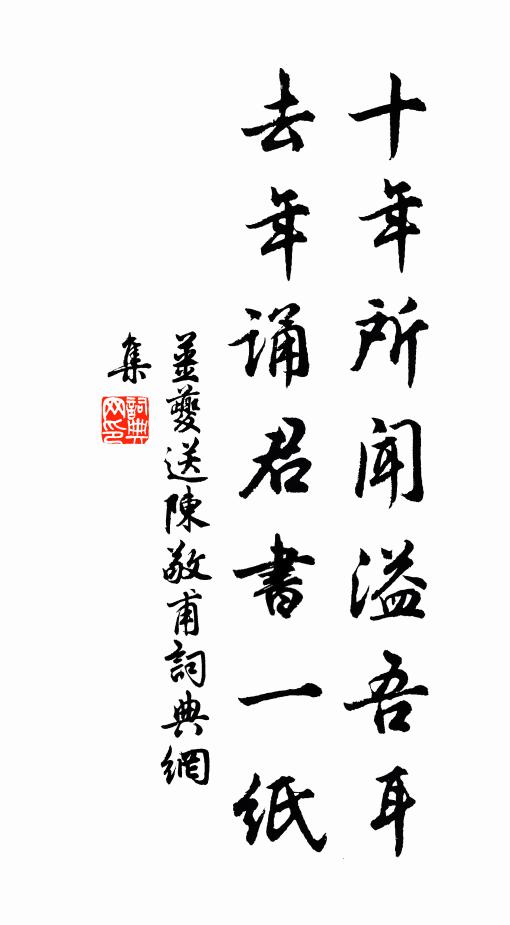 十年所闻溢吾耳
去年诵君書一紙
薑夔送陳敬甫詞典網
集
詞典
网印